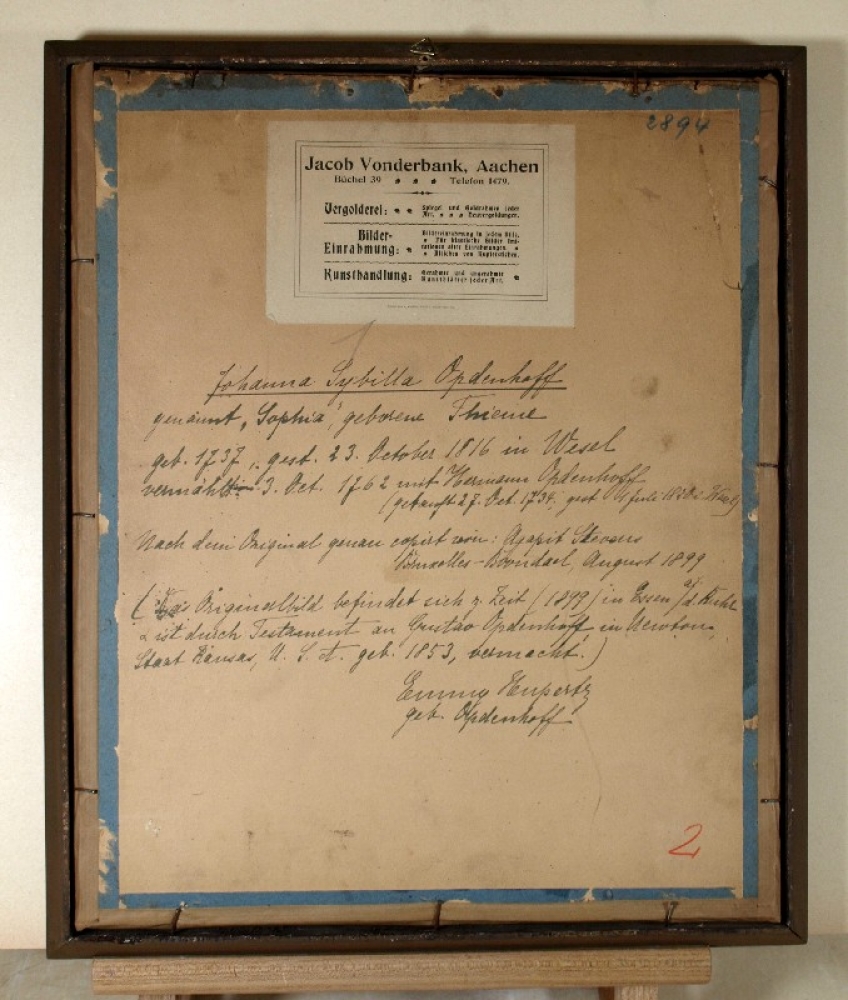 2894
Jacob Vonderbank, Aachen
Büchel 39 * * * Telefon 1479.
Vergolderei: * * Spiegel und Goldrahmen jeder
Art. * * * Neuvergoldungen.
Bilder-
Einrahmung: * Bildereinrahmung in jedem Stile.
Kunsthandlung: Gerahmte und ungerahmte
Kunstblätter jeder Art.
Johanna Sybilla Opdenhoff
genannt „Sophia", geborene Thieme
geb. 1737, gest. 23. October 1816 in Wesel
vermählt 3. Oct. 1762 mit Hermann Opdenhoff
(getauft 27. Oct. 1734, gest Juli
Nach dem Original genau copirt von: Agapit Stevens
Bruxelles-Boondael, August 1899
(Das Originalbild befindet sich z. Zeit (1899) in Essen a/d. Ruhr
& ist durch Testament an Gustav Opdenhoff in Newton,
Staat Kansas, U. S. A. geb. 1853, vermacht.)
Emmy Hupertz
geb. Opdenhoff
2